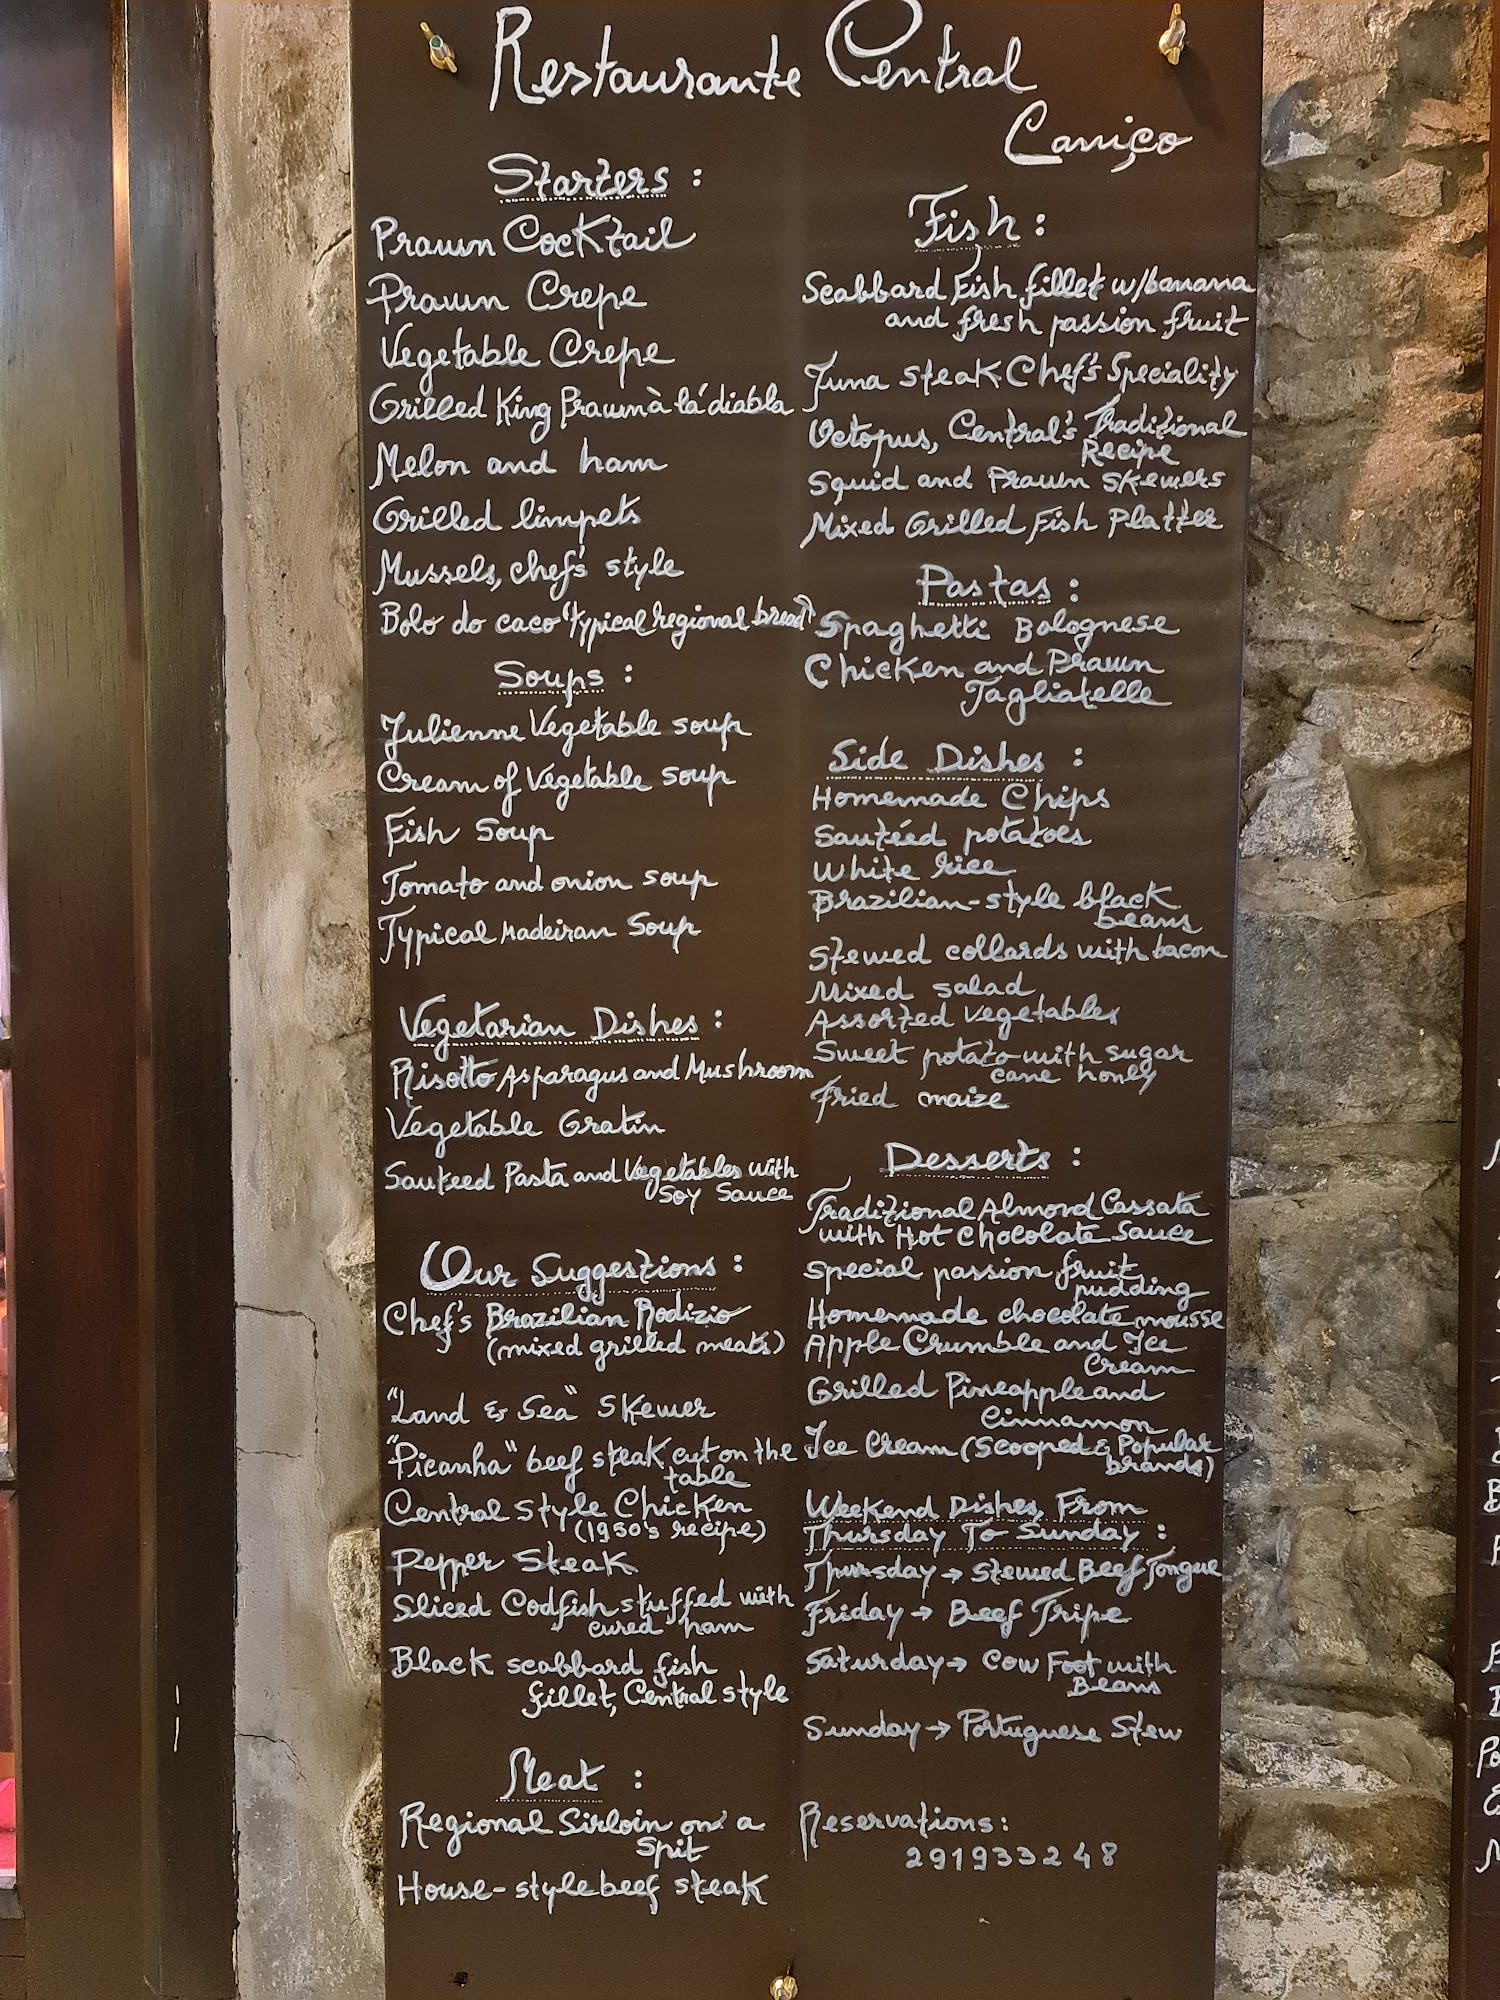 Restaurante Central
Caniço
Starters :
Prawn Cocktail
Prawn Crepe
Vegetable Crepe
Grilled King Prawn à la' diabla
Melon and ham
Grilled limpets
Mussels, chef's style
Bolo do caco "typical regional bread"
Soups :
Julienne Vegetable soup
Cream of Vegetable soup
Fish Soup
Tomato and onion soup
Typical Madeiran Soup
Vegetarian Dishes :
Risotto Asparagus and Mushroom
Vegetable Gratin
Sauteed Pasta and Vegetables with
Soy Sauce
Our Suggestions :
Chef's Brazilian Rodizio
(mixed grilled meats)
"Land & Sea" Skewer
"Picanha" beef steak cut on the
table
Central Style Chicken
(1950's recipe)
Pepper Steak
Sliced Codfish stuffed with
cured ham
Black scabbard fish
fillet, Central style
Meat :
Regional Sirloin on a
Spit
House-style beef steak
Fish :
Scabbard Fish fillet w/banana
and fresh passion fruit
Tuna steak Chef's Speciality
Octopus, Central's Traditional
Recipe
Squid and Prawn Skewers
Mixed Grilled Fish Platter
Pastas :
Spaghetti Bolognese
Chicken and Prawn
Tagliatelle
Side Dishes :
Homemade Chips
Sautéed potatoes
White rice
Brazilian-style black
beans
Stewed collards with bacon
Mixed salad
Assorted vegetables
Sweet potato with sugar
cane honey
Fried maize
Desserts :
Traditional Almond Cassata
with Hot Chocolate Sauce
Special passion fruit
pudding
Homemade chocolate mousse
Apple Crumble and Ice
Cream
Grilled Pineapple and
Cinnamon
Ice Cream (Scooped & Popular
brands)
Weekend Dishes, From
Thursday To Sunday :
Thursday → Stewed Beef Tongue
Friday → Beef Tripe
Saturday → Cow Foot with
Beans
Sunday → Portuguese Stew
Reservations:
291933248